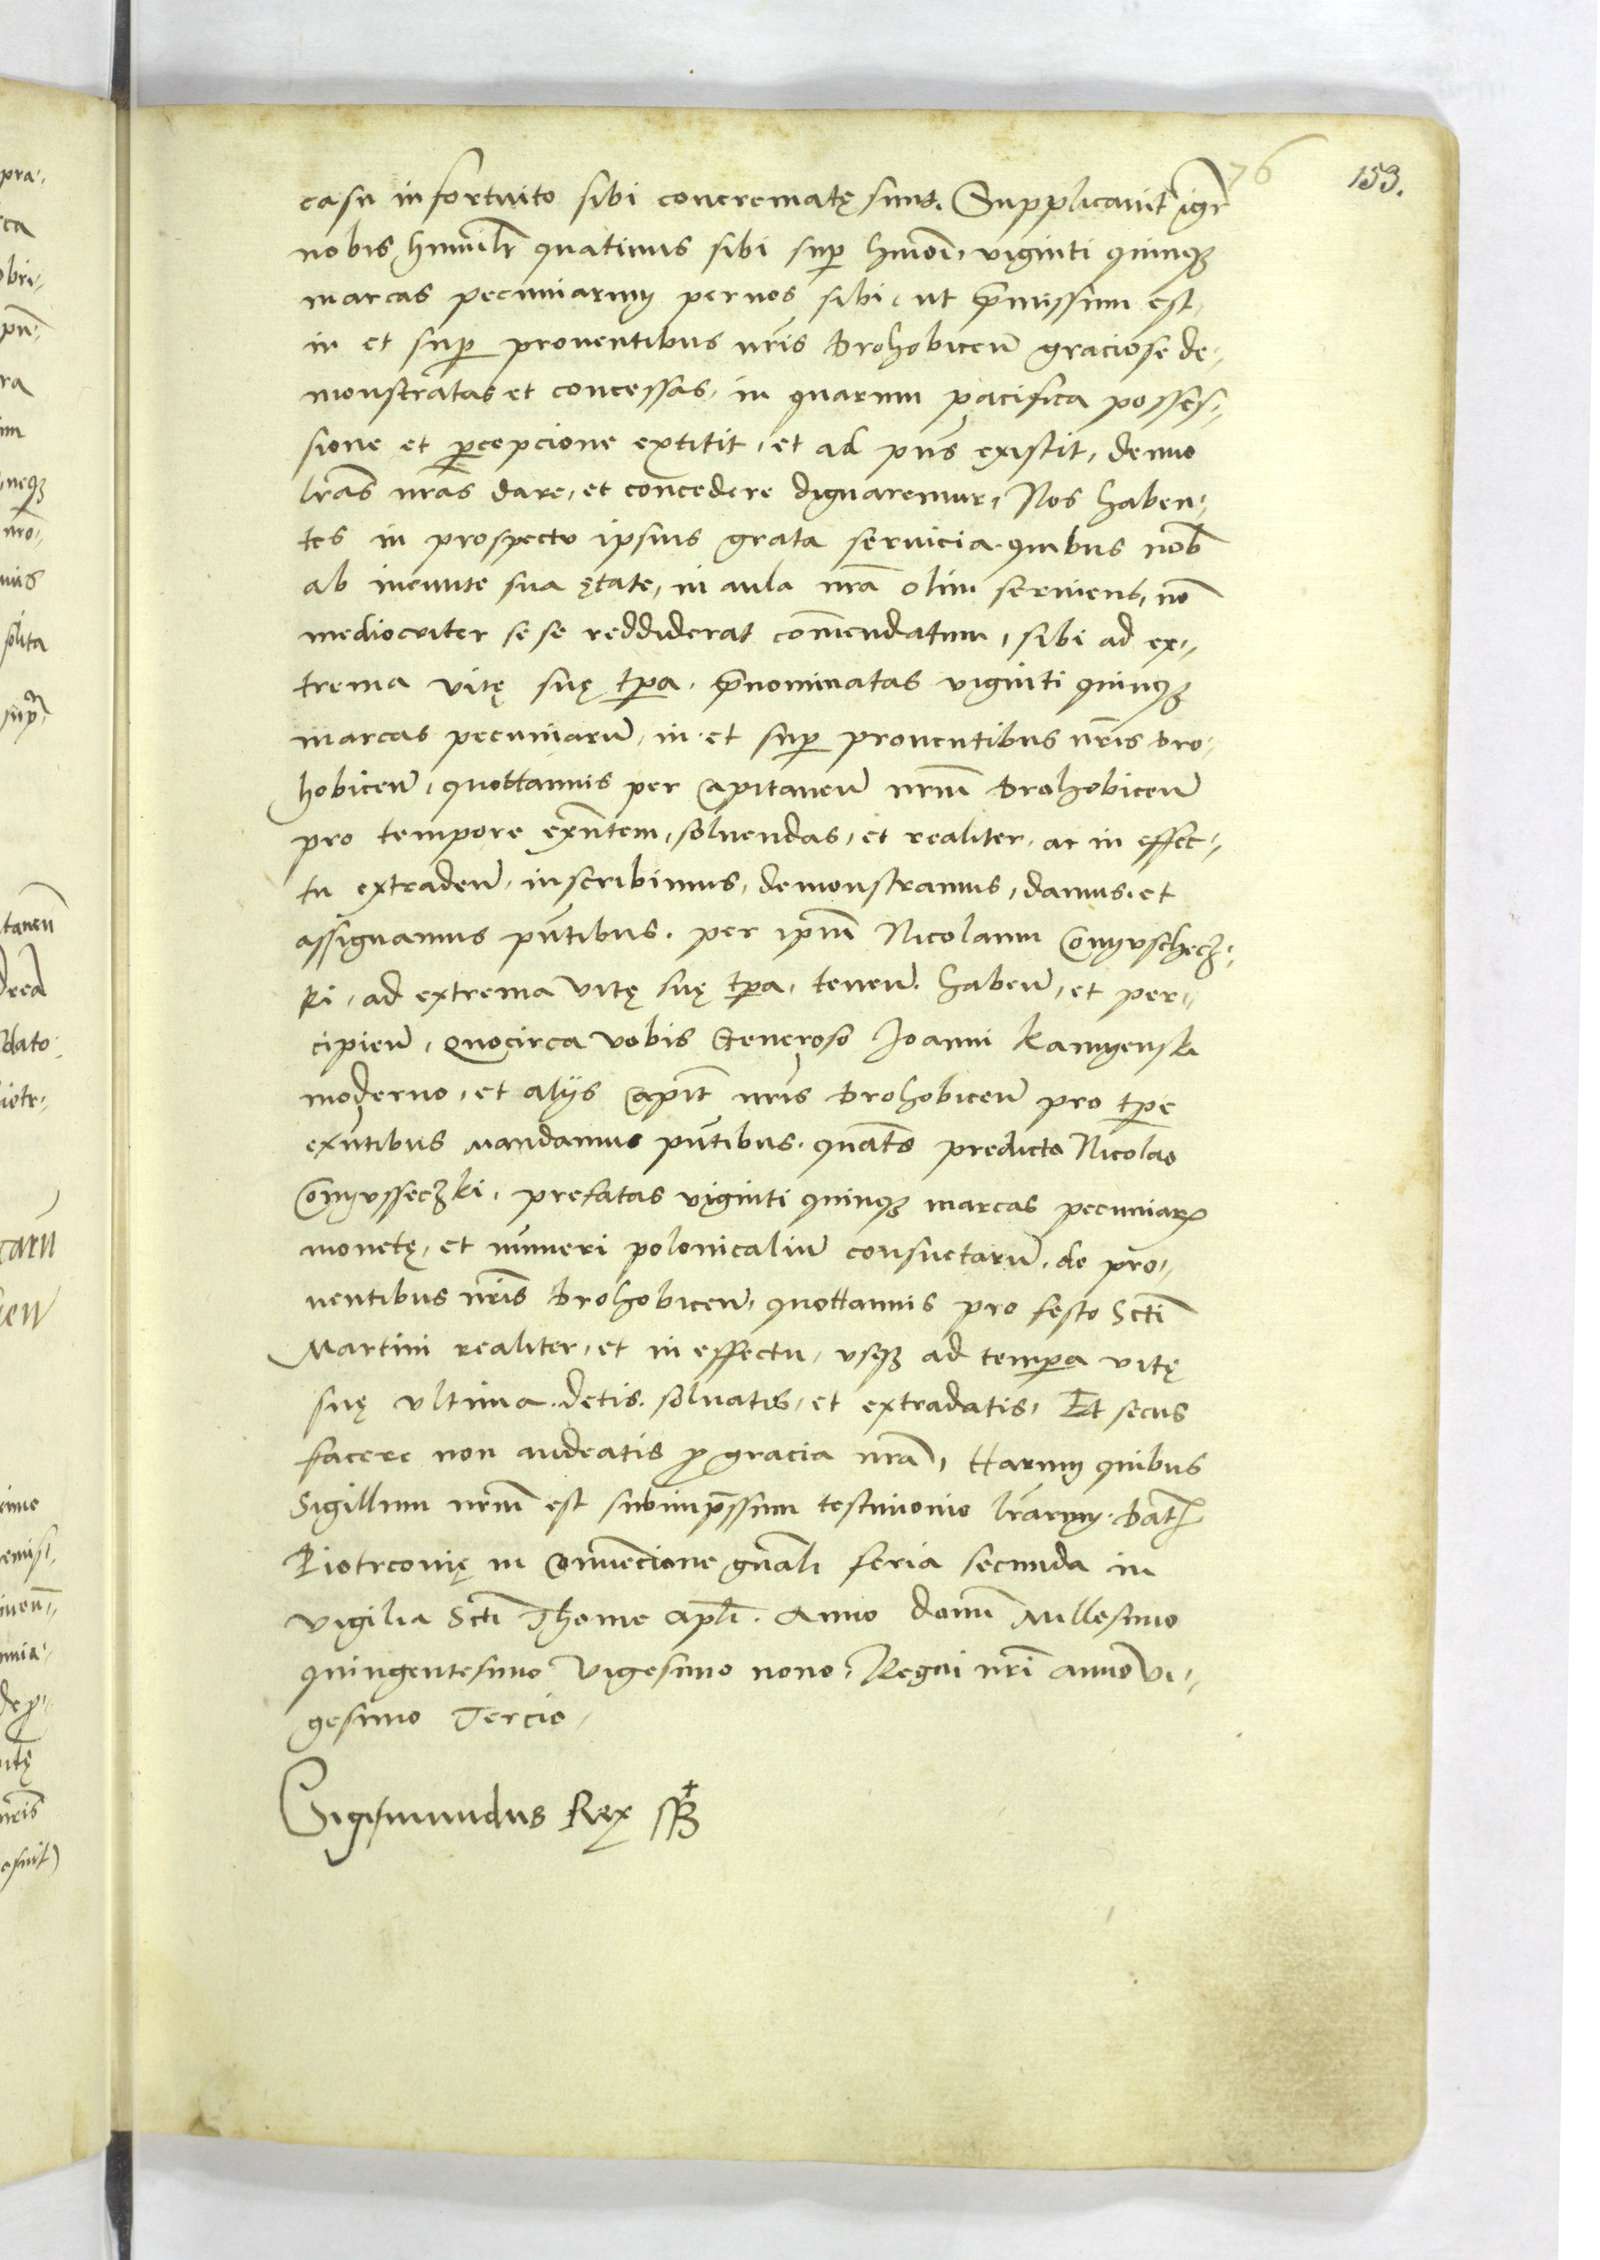 76 153.
casu infortuito sibi concrematę sunt. Supplicavit igr̃
nobis humilr̃ quatinus sibi sup hmoĩ, viginti quinqꝫ
marcas pecuniarum per nos sibi, ut p̃missum est,
in et sup proventibus nr̃is Drohobiceñ graciose de-
monstratas et concessas, in quarum pacifica posses-
sione et ꝑcepcione extitit, et ad pñs existit, denuo
lr̃as nr̃as dare, et concedere dignaremur, Nos haben-
tes in prospectu ipsius grata servicia, quibus nob̃
ab ineunte sua ętate, in aula nr̃a olim serviens, nõ
mediocriter sese reddiderat com̃endatum, sibi ad ex-
trema vitę suę tpa, p̃nominatas viginti quinqꝫ
marcas pecuniarũ, in et sup proventibus nr̃is Dro-
hobiceñ, quottannis per Capitaneũ nr̃um Drohobiceñ
pro tempore exñtem, solvendas, et realiter, ac in effec-
tu extradeñ, inscribimus, demonstramus, damus, et
assignamus pñtibus, per ipm̃ Nicolaum Comyschecz-
ki, ad extrema vitę suę tpa, teneñ, habeñ, et per-
cipieñ, Quocirca vobis Generoso Joanni Kamyenski
moderno, et alijs Capit̃ nr̃is Drohobiceñ pro tpe
exñtibus mandamus pñtibus, quat̃s predicto Nicolao
Comysseczki, prefatas viginti quinqꝫ marcas pecuniarꝝ
monetę, et numeri polonicaliũ consuetarũ, de pro-
ventibus nr̃is Drohobiceñ, quottannis pro festo Scti
Martini realiter, et in effectu, usqꝫ ad tempa vitę
suę ultima, detis, solvatis, et extradatis, Et secus
facere non audeatis ꝓ gracia nr̃a, Harum quibus
Sigillum nr̃um est subimp̃ssum testimonio lr̃arum. Dat̃
Piotrconię in Conventione gñali feria secunda in
vigilia Scti Thome apli. Anno Domini Millesimo
quingentesimo Vigesimo nono, Regni nr̃i anno vi-
gesimo Tercio
Sigismundus Rex